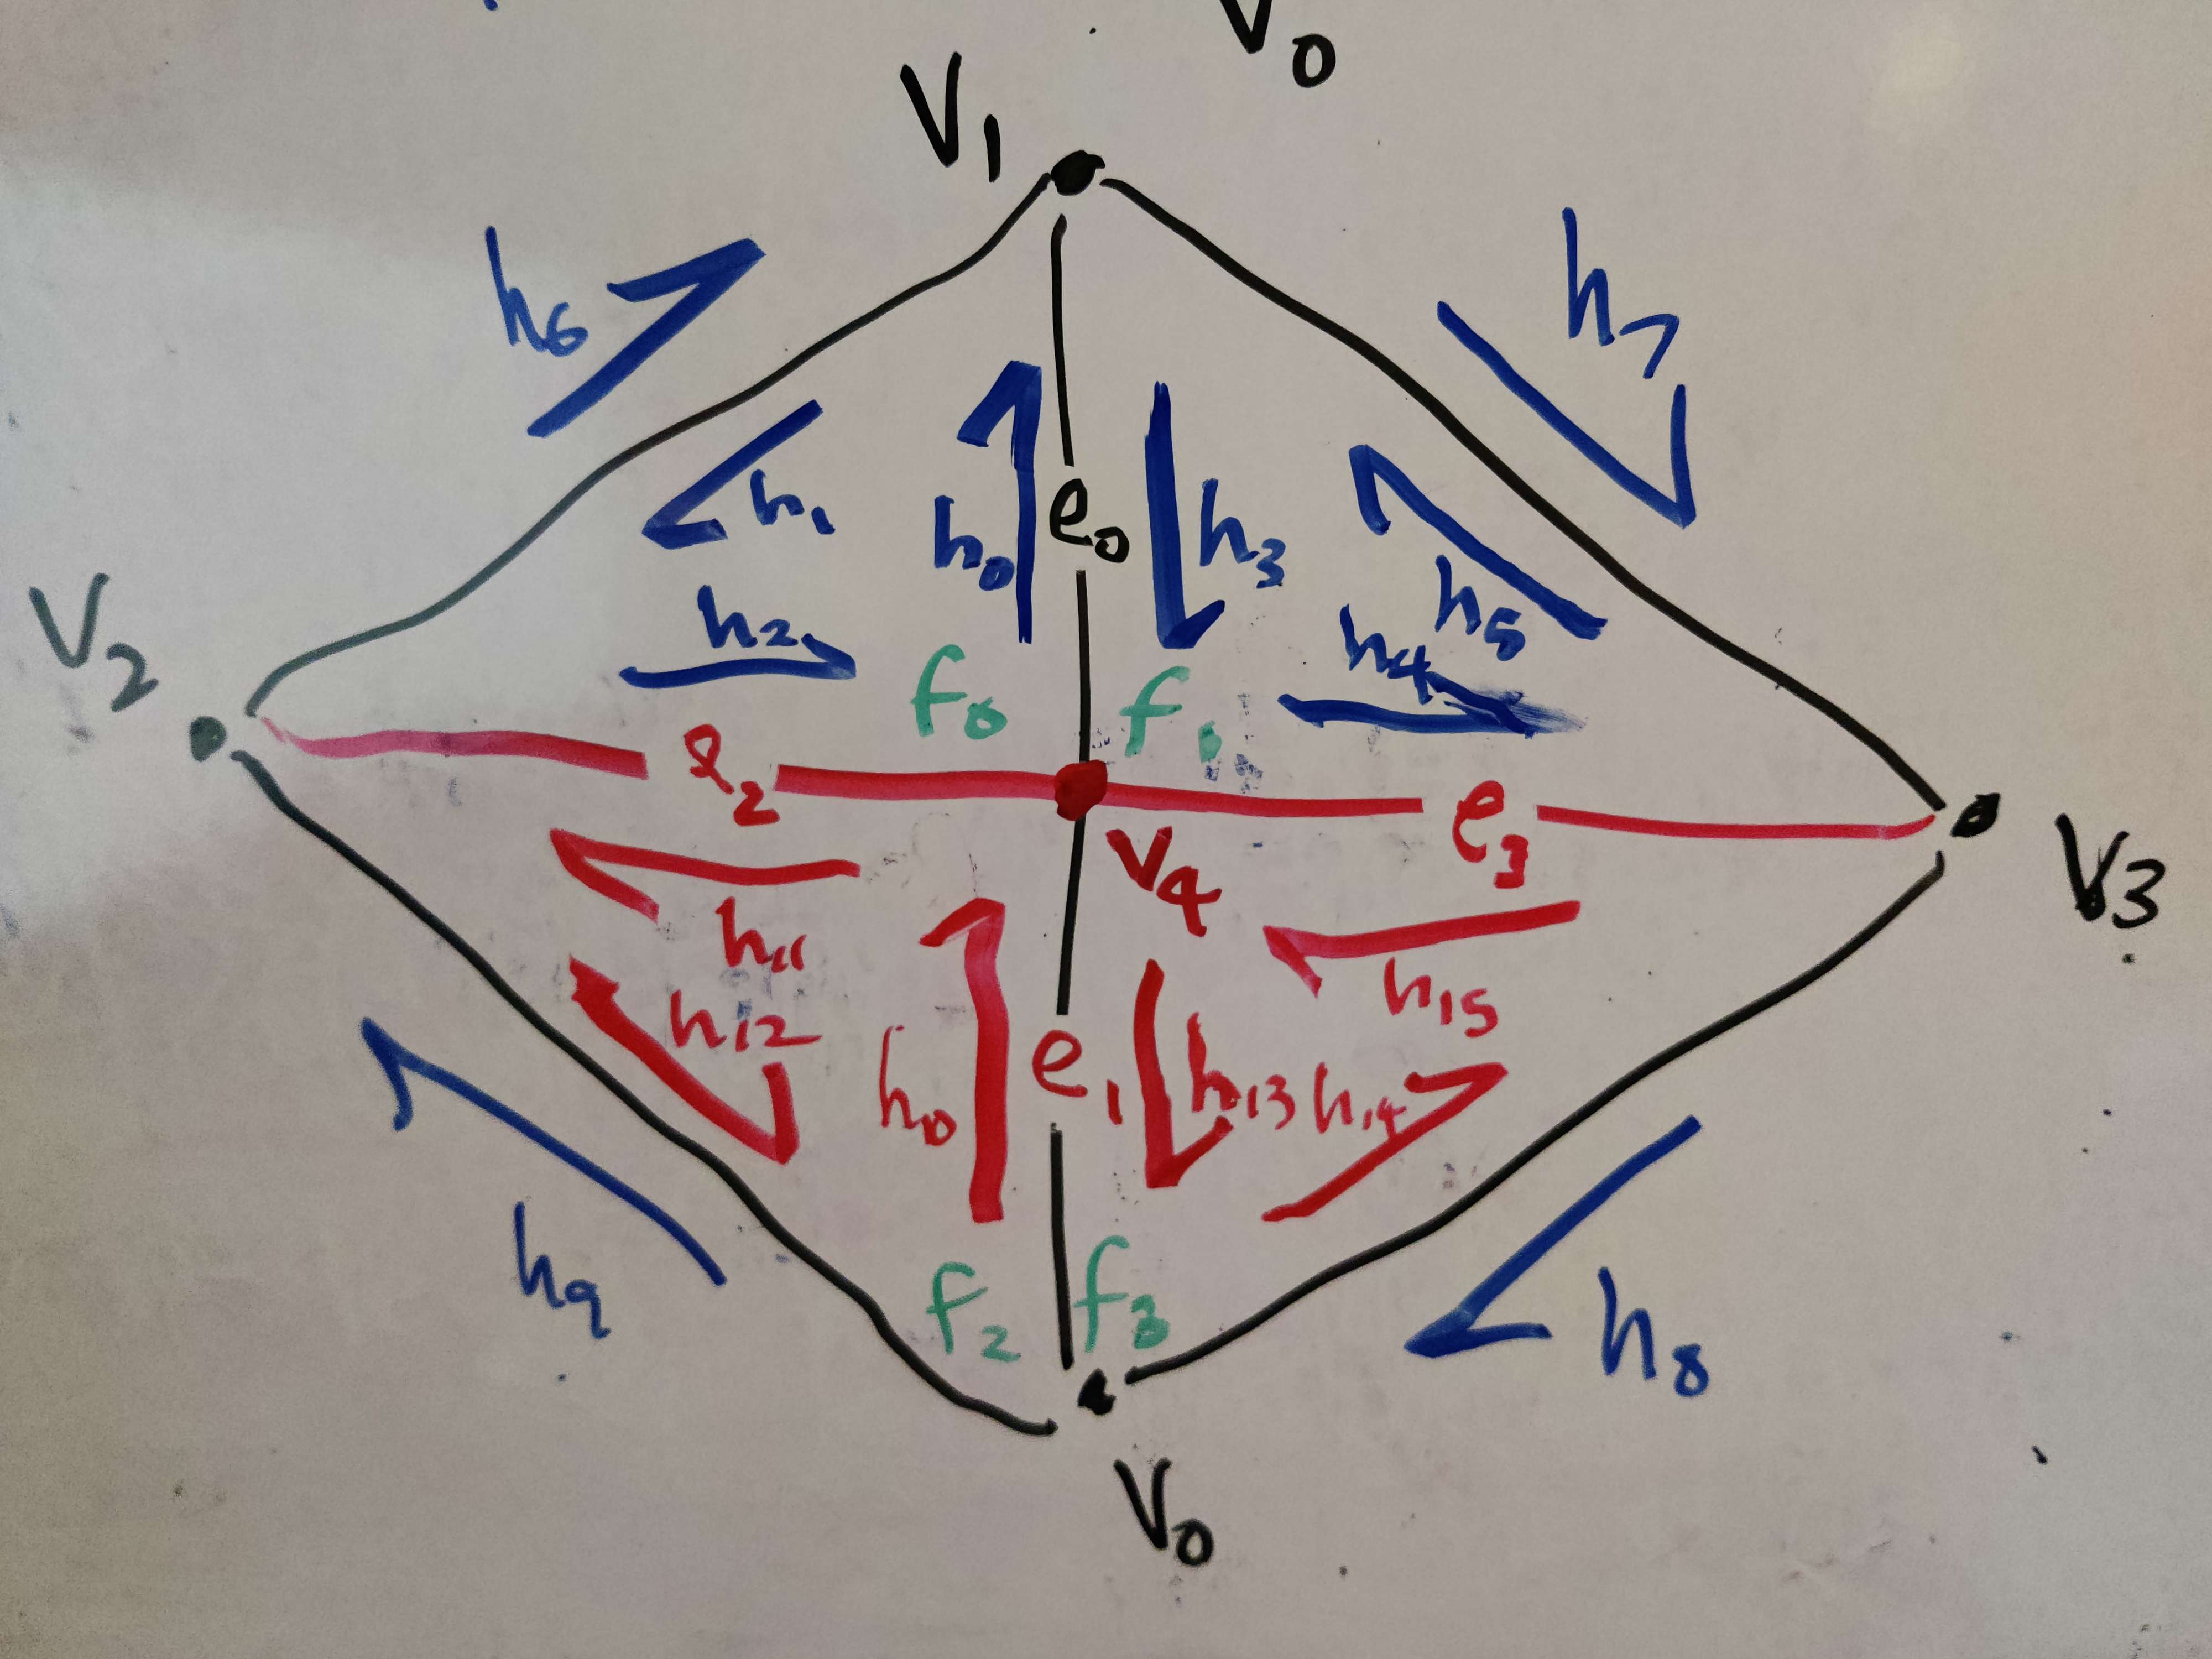 V0
V1
h6
h7
h1
h0
e0
h3
h5
h2
h4
V2
f0
f1
e2
e3
V4
V3
h11
h15
h12
h0
e1
h13
h14
h9
f2
f3
h8
V0